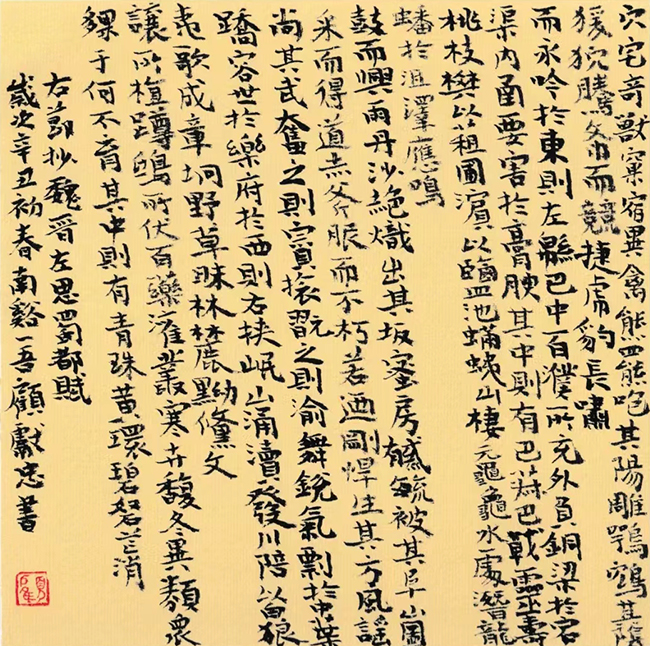 穴宅奇獸窠宿異禽熊羆咆其陽雕鶚鴥其陰
猨狖騰希而競捷虎豹長嘯
而永吟於東則左緜巴中百濮所充外負銅梁於宕
渠內函要害於膏腴其中則有巴菽巴戟靈壽
桃枝樊以蒩圃濱以鹽池蟞蛦山棲黿龜水處潛龍
蟠於沮澤應鳴
鼓而興雨丹沙赩熾出其坂蜜房郁毓被其阜山圖
采而得道赤斧服而不朽若迺剛悍生其方風謠
尚其武奮之則賨旅翫之則渝舞銳氣剽於中葉
蹻容世於樂府於西則右挾岷山涌瀆發川陪以白狼
夷歌成章坰野草昧林麓黝儵交
讓所植蹲鴟所伏百藥灌叢寒卉馥冬異類眾
夥于何不育其中則有青珠黃環碧砮芒消
右節抄魏晉左思蜀都賦
歲次辛丑初春南谿一吾顧獻忠書